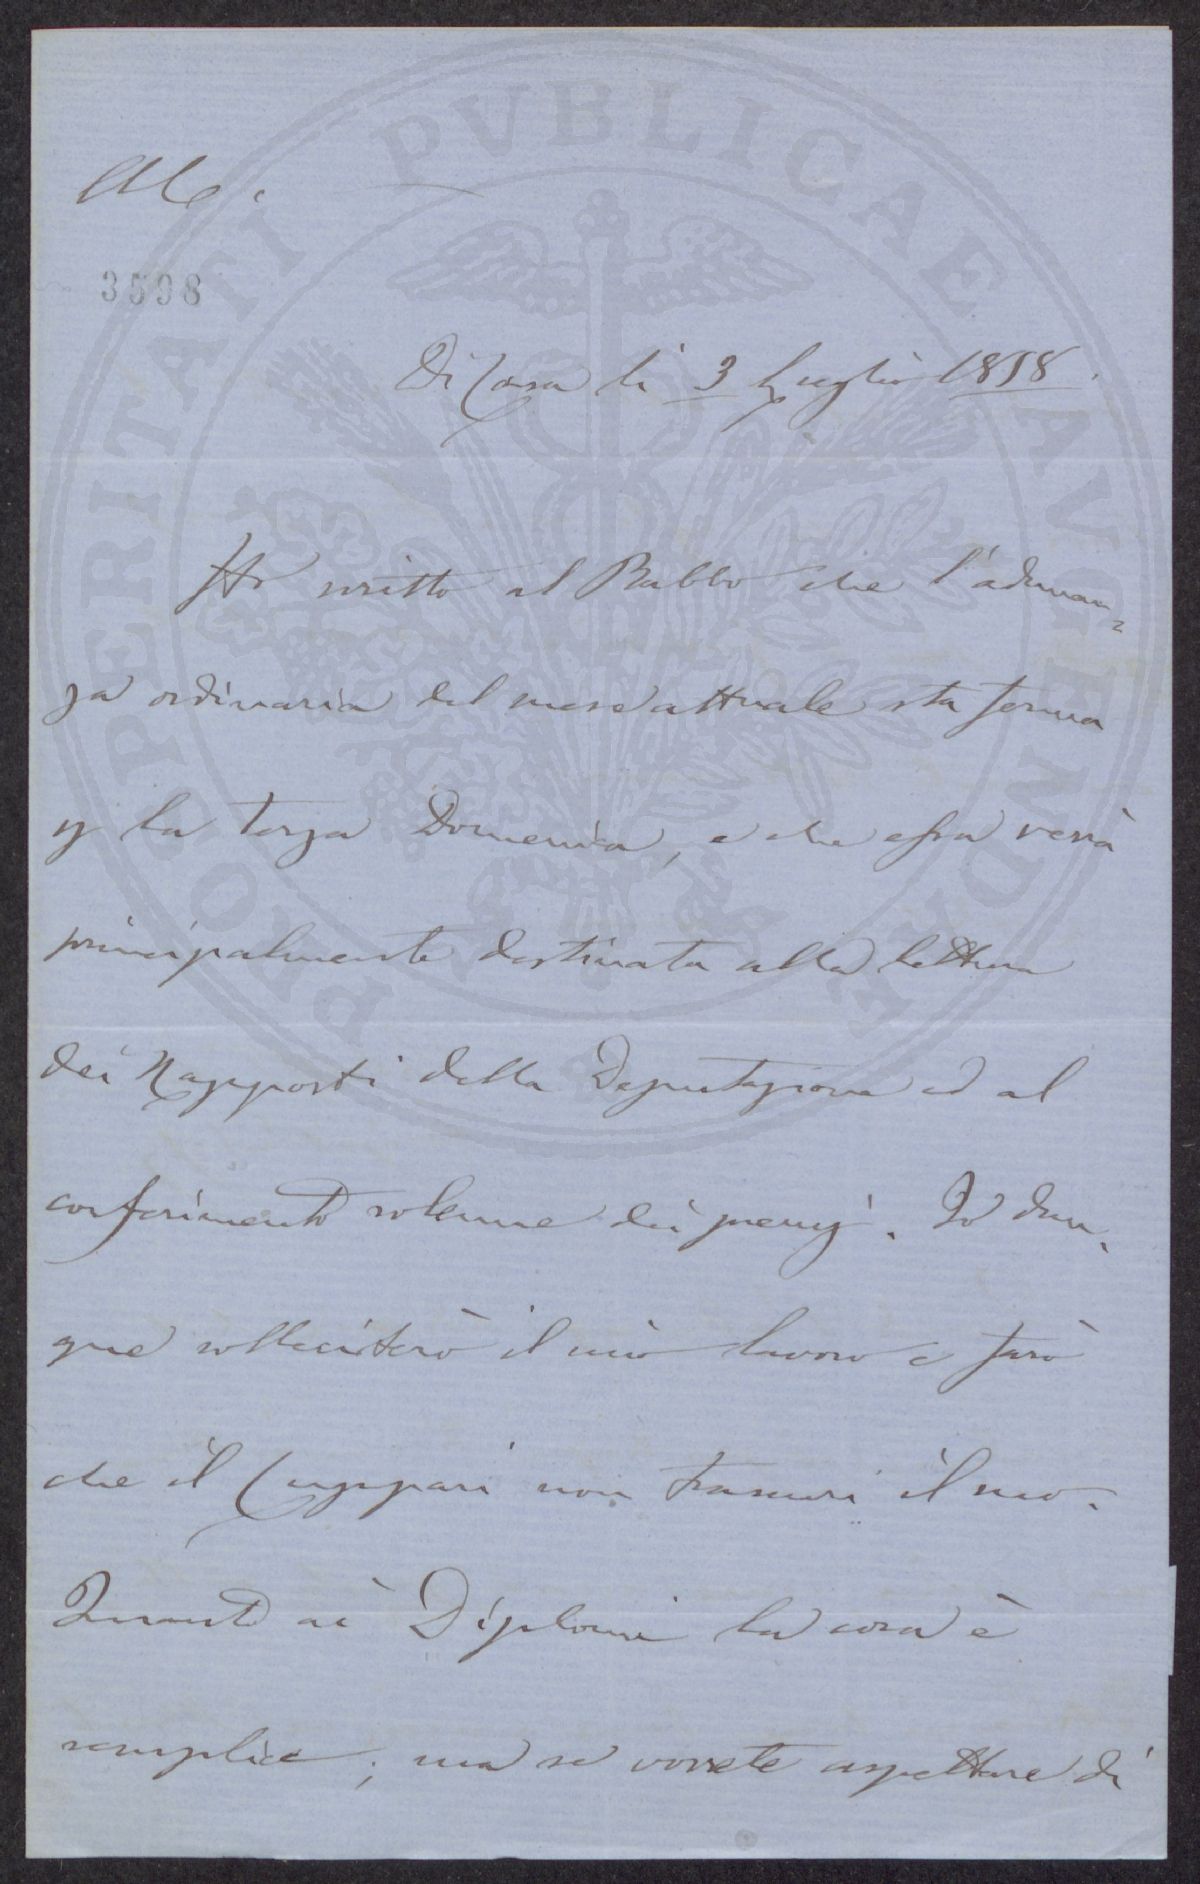 PROSPERITATI PVBLICAE AVGENDAE
3598
Di Casa li 3 Luglio 1858.
Ho scritto al Babbo che l'adunan=
za ordinaria del mese attuale sta ferma
p la terza Domenica, e che essa verrà
principalmente destinata alla lettura
dei Rapporti della Deputazione ed al
conferimento solenne dei premj. Io dun=
que solleciterò il mio lavoro e farò
che il Cuppari non trascuri il suo.
Quanto ai Diplomi la cosa è
semplice; ma se vorrete aspettare di